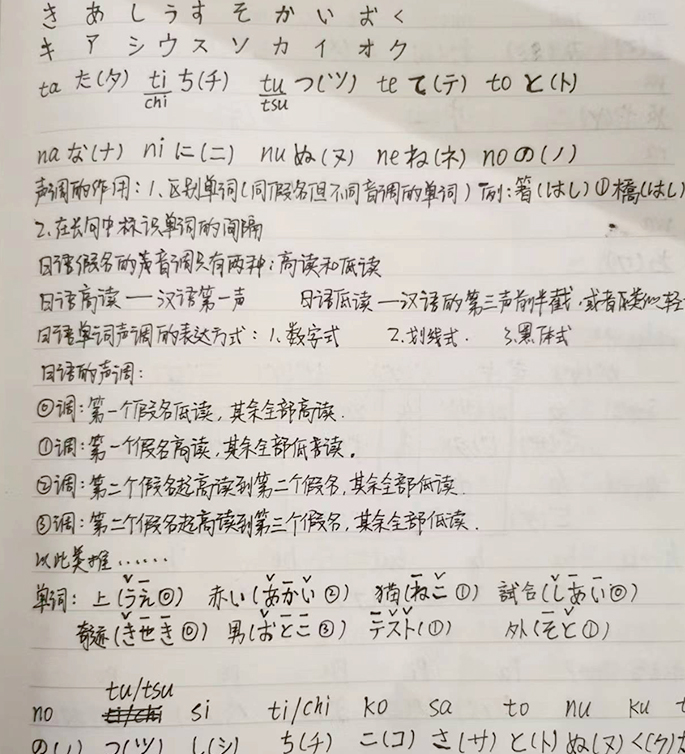 き あ し う す そ か い お く
キ ア シ ウ ス ソ カ イ オ ク
ta た(タ) ti/chi ち(チ) tu/tsu つ(ツ) te て(テ) to と(ト)
na な(ナ) ni に(ニ) nu ぬ(ヌ) ne ね(ネ) no の(ノ)
声调的作用:1、区别单词(同假名但不同音调的单词) 例:箸(はし)① 橋(はし)
2.在长句中标识单词的间隔
日语假名的声音调只有两种:高读和低读
日语高读——汉语第一声 日语低读—汉语的第三声前半截,或者类似轻
日语单词声调的表达方式:1、数字式 2.划线式. 3.黑体式
日语的声调:
⓪调:第一个假名低读,其余全部高读.
①调:第一个假名高读,其余全部低音读。
②调:第二个假名起高读到第二个假名,其余全部低读.
③调:第二个假名起高读到第三个假名,其余全部低读.
以此类推......
单词: 上(うえ⓪) 赤い(あかい②) 猫(ねこ①) 試合(しあい⓪)
奇迹(きせき⓪) 男(おとこ③) テスト(①) 外(そと①)
tu/tsu
no si ti/chi ko sa to nu ku t
の(ノ) つ(ツ) し(シ) ち(チ) こ(コ) さ(サ) と(ト) ぬ(ヌ) く(ク)